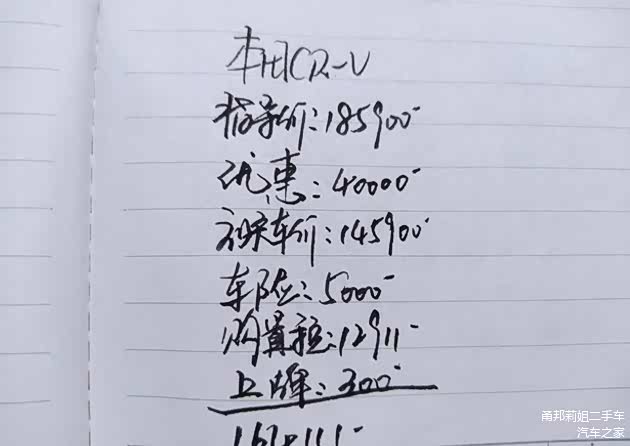 本田CR-V
指导价:185900
优惠:40000
裸车价:145900
车险:5000
购置税:12911
上牌:300
甬邦莉姐二手车
汽车之家